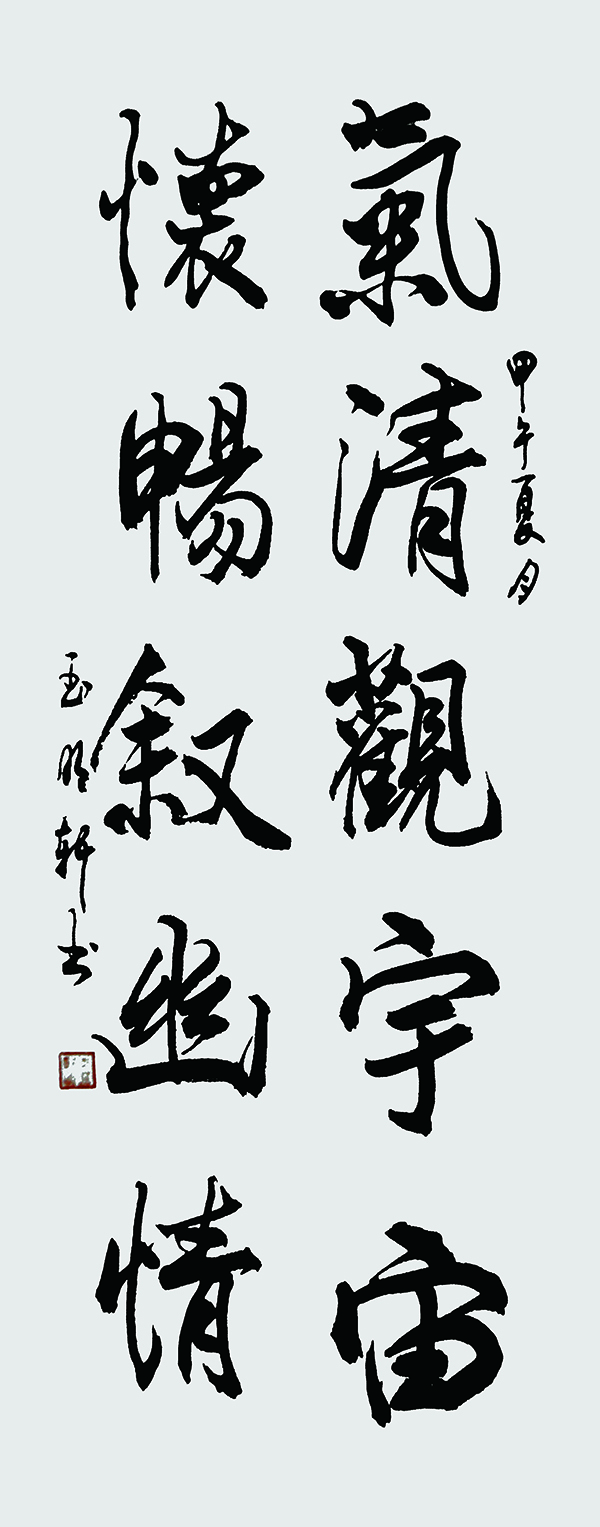 甲午夏月
氣清觀宇宙
懷暢叙幽情
玉明軒书